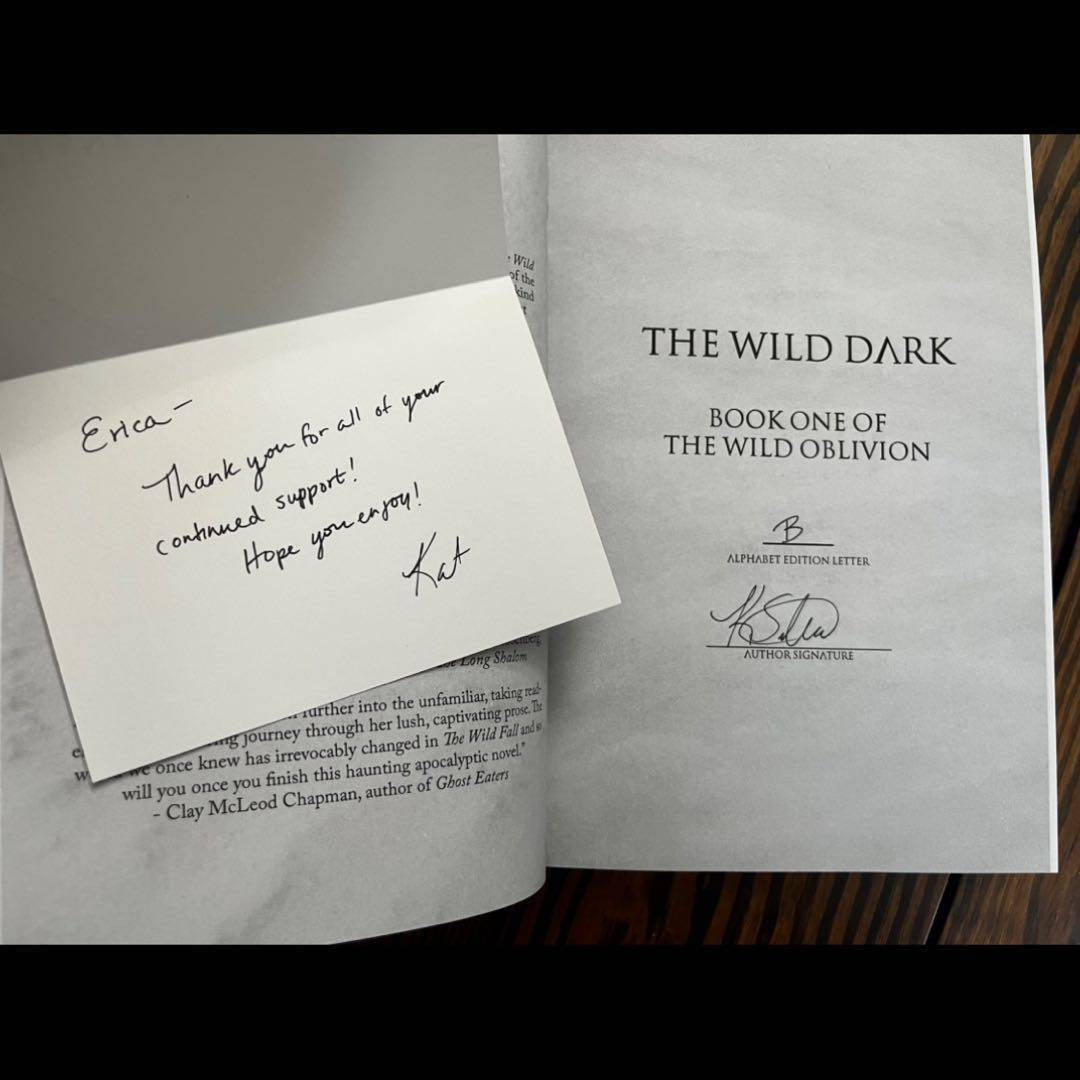 Erica-
Thank you for all of your
continued support!
Hope you enjoy!
Kat
Wild
of the
kind
Long Shalom
further into the unfamiliar, taking read-
journey through her lush, captivating prose. The
we once knew has irrevocably changed in The Wild Fall and so
will you once you finish this haunting apocalyptic novel."
- Clay McLeod Chapman, author of Ghost Eaters
THE WILD DARK
BOOK ONE OF
THE WILD OBLIVION
B
ALPHABET EDITION LETTER
AUTHOR SIGNATURE